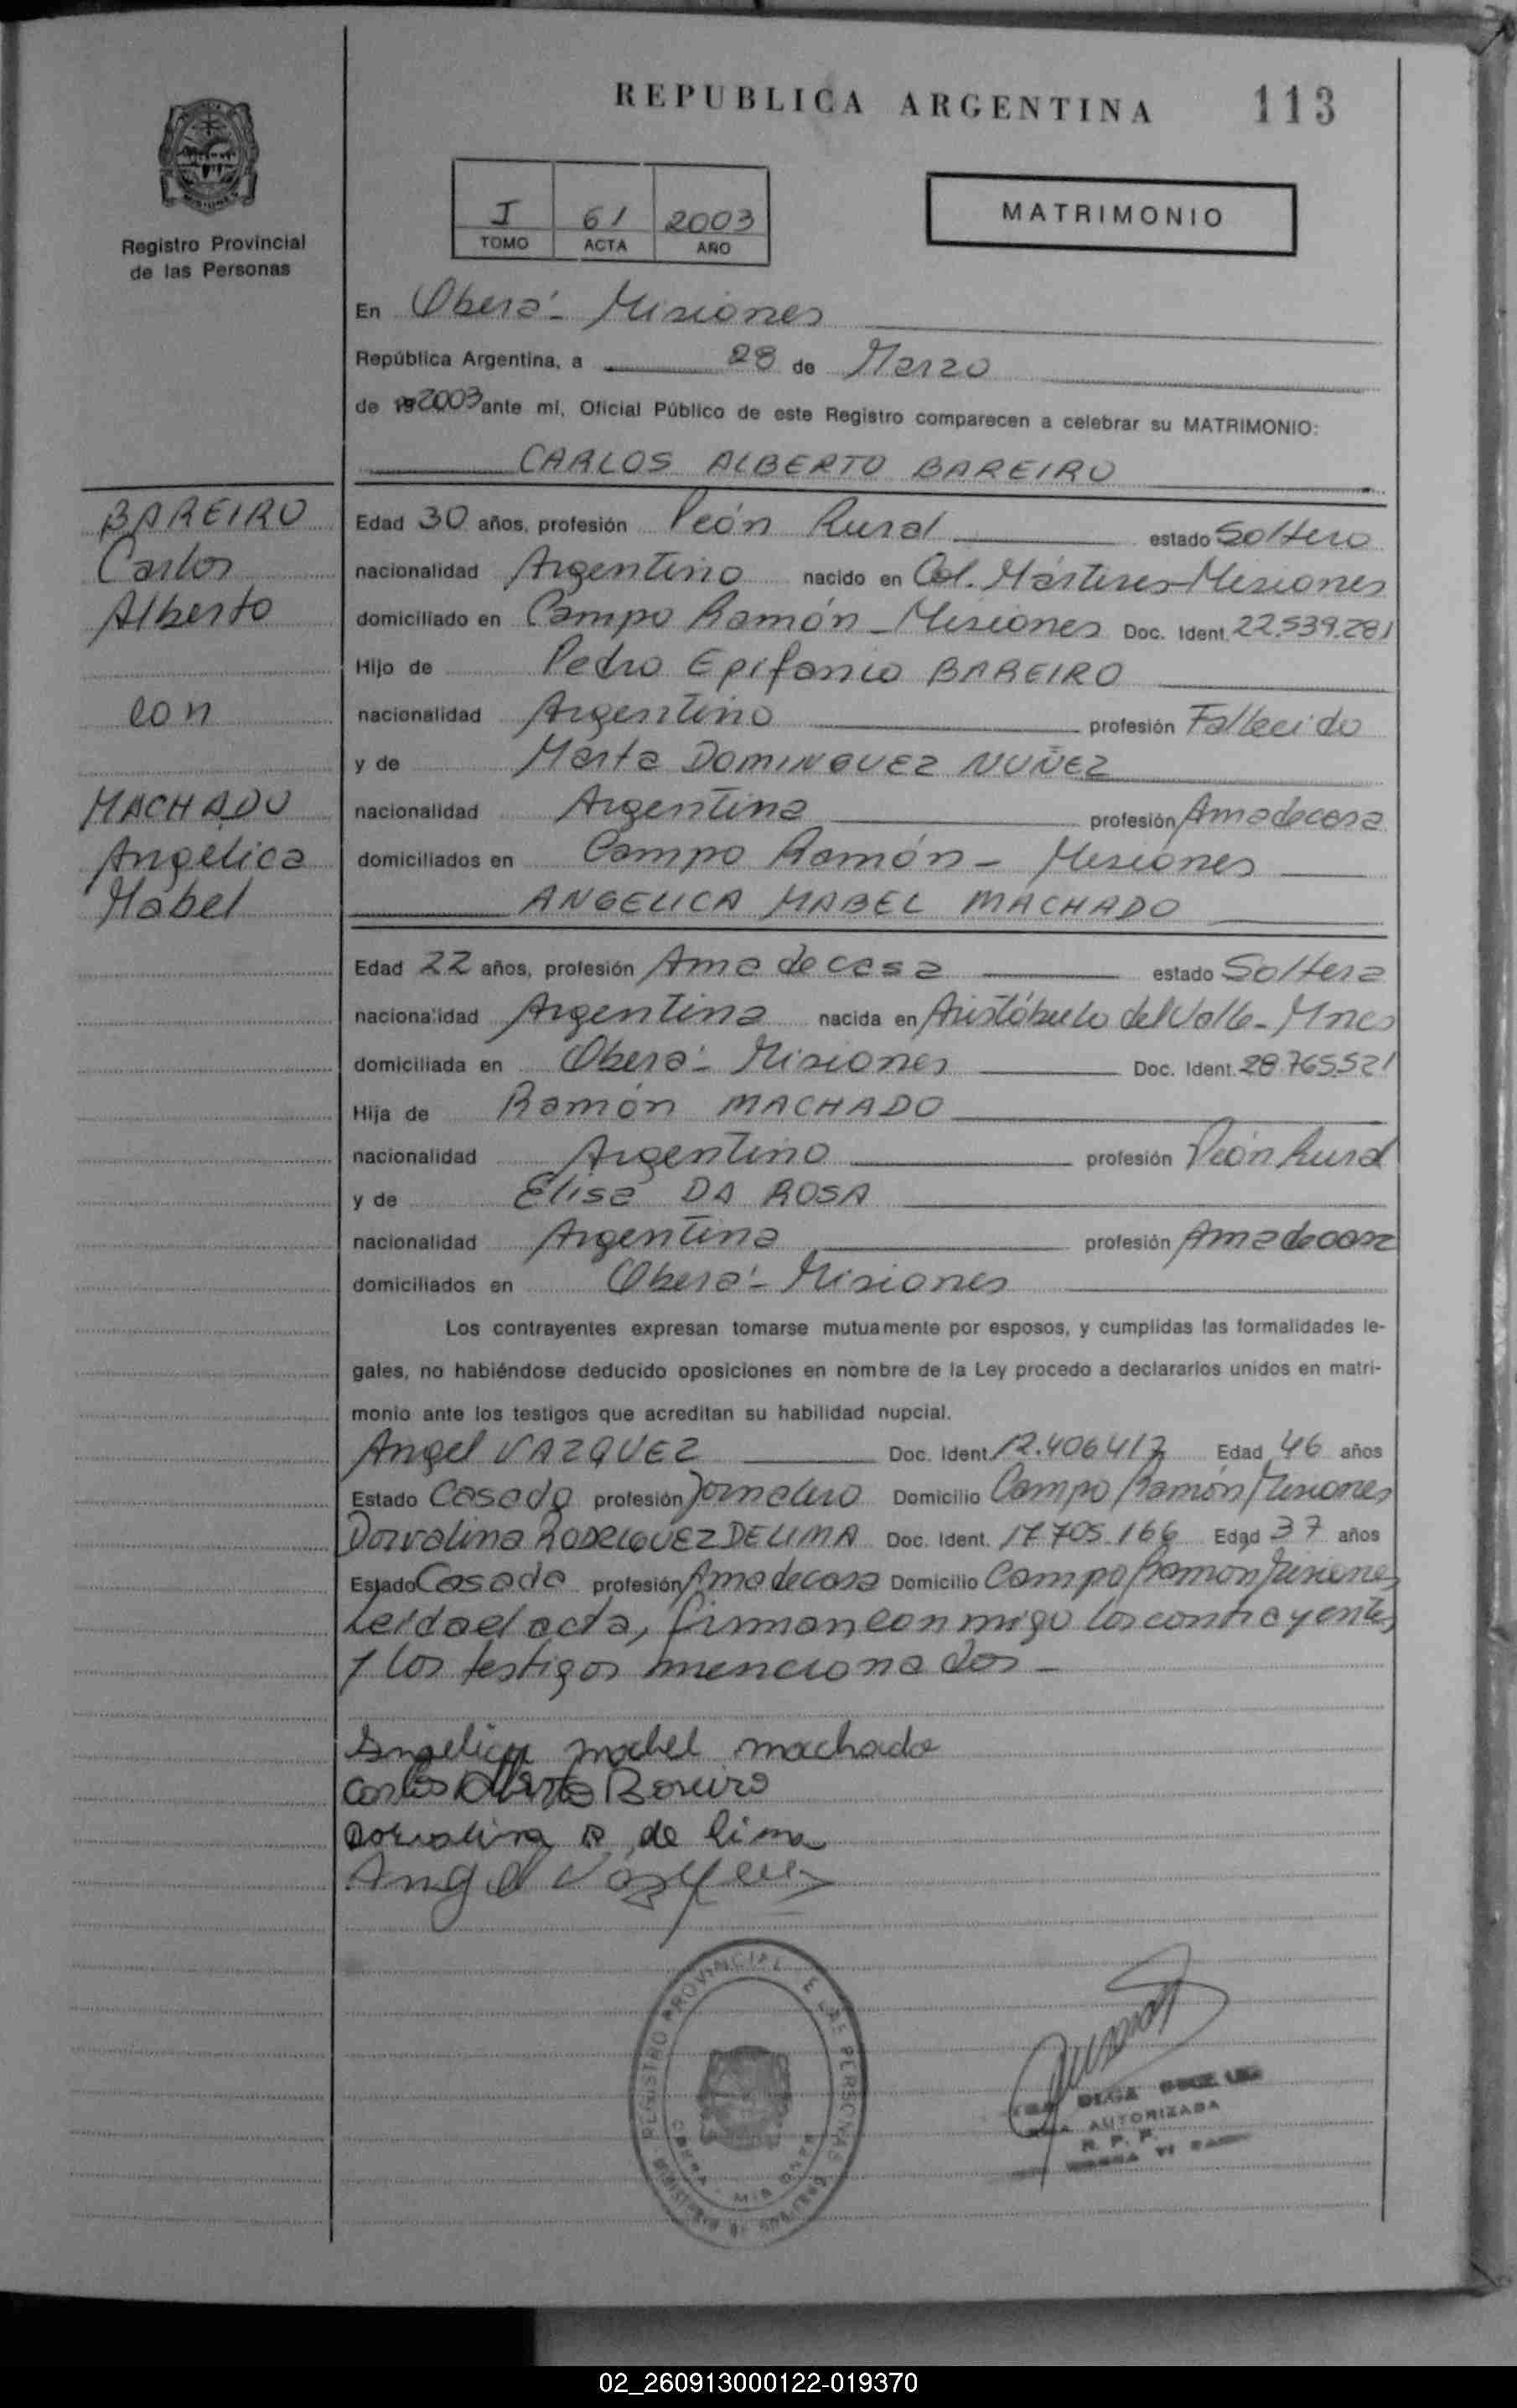 REPUBLICA ARGENTINA 113
I 61 2003
TOMO ACTA AÑO
MATRIMONIO
Registro Provincial
de las Personas
En Oberá - Misiones
República Argentina, a 28 de Marzo
de 19 2003 ante mí, Oficial Público de este Registro comparecen a celebrar su MATRIMONIO:
CARLOS ALBERTO BAREIRO
BAREIRO
Carlos
Alberto
con
MACHADO
Angelica
Mabel
Edad 30 años, profesión Peón Rural estado Soltero
nacionalidad Argentino nacido en Col. Mártires-Misiones
domiciliado en Campo Ramón - Misiones Doc. Ident. 22.539.281
Hijo de Pedro Epifanio BAREIRO
nacionalidad Argentino profesión Fallecido
y de Marta DOMINGUEZ NUÑEZ
nacionalidad Argentina profesión Ama de casa
domiciliados en Campo Ramón - Misiones
ANGELICA MABEL MACHADO
Edad 22 años, profesión Ama de casa estado Soltera
nacionalidad Argentina nacida en Aristóbulo del Valle - Mnes
domiciliada en Oberá - Misiones Doc. Ident. 28.765.521
Hija de Ramón MACHADO
nacionalidad Argentino profesión Peón Rural
y de Elisa DA ROSA
nacionalidad Argentina profesión Ama de casa
domiciliados en Oberá - Misiones
Los contrayentes expresan tomarse mutuamente por esposos, y cumplidas las formalidades le-
gales, no habiéndose deducido oposiciones en nombre de la Ley procedo a declararlos unidos en matri-
monio ante los testigos que acreditan su habilidad nupcial.
Angel VAZQUEZ Doc. Ident. 12.406417 Edad 46 años
Estado Casado profesión Jornalero Domicilio Campo Ramón Misiones
Dorvalina RODRIGUEZ DE LIMA Doc. Ident. 17.705.166 Edad 37 años
Estado Casada profesión Ama de casa Domicilio Campo Ramón Misiones
Leida el acta, firman con migo los contrayentes
y los testigos mencionados -
Angelica mabel machado
Carlos Alberto Bareiro
Dorvalina R de lima
Angel Vazquez
REGISTRO PROVINCIAL DE LAS PERSONAS
OBERA - MISIONES
OLGA
AUTORIZADA
R. P. P.
02_260913000122-019370